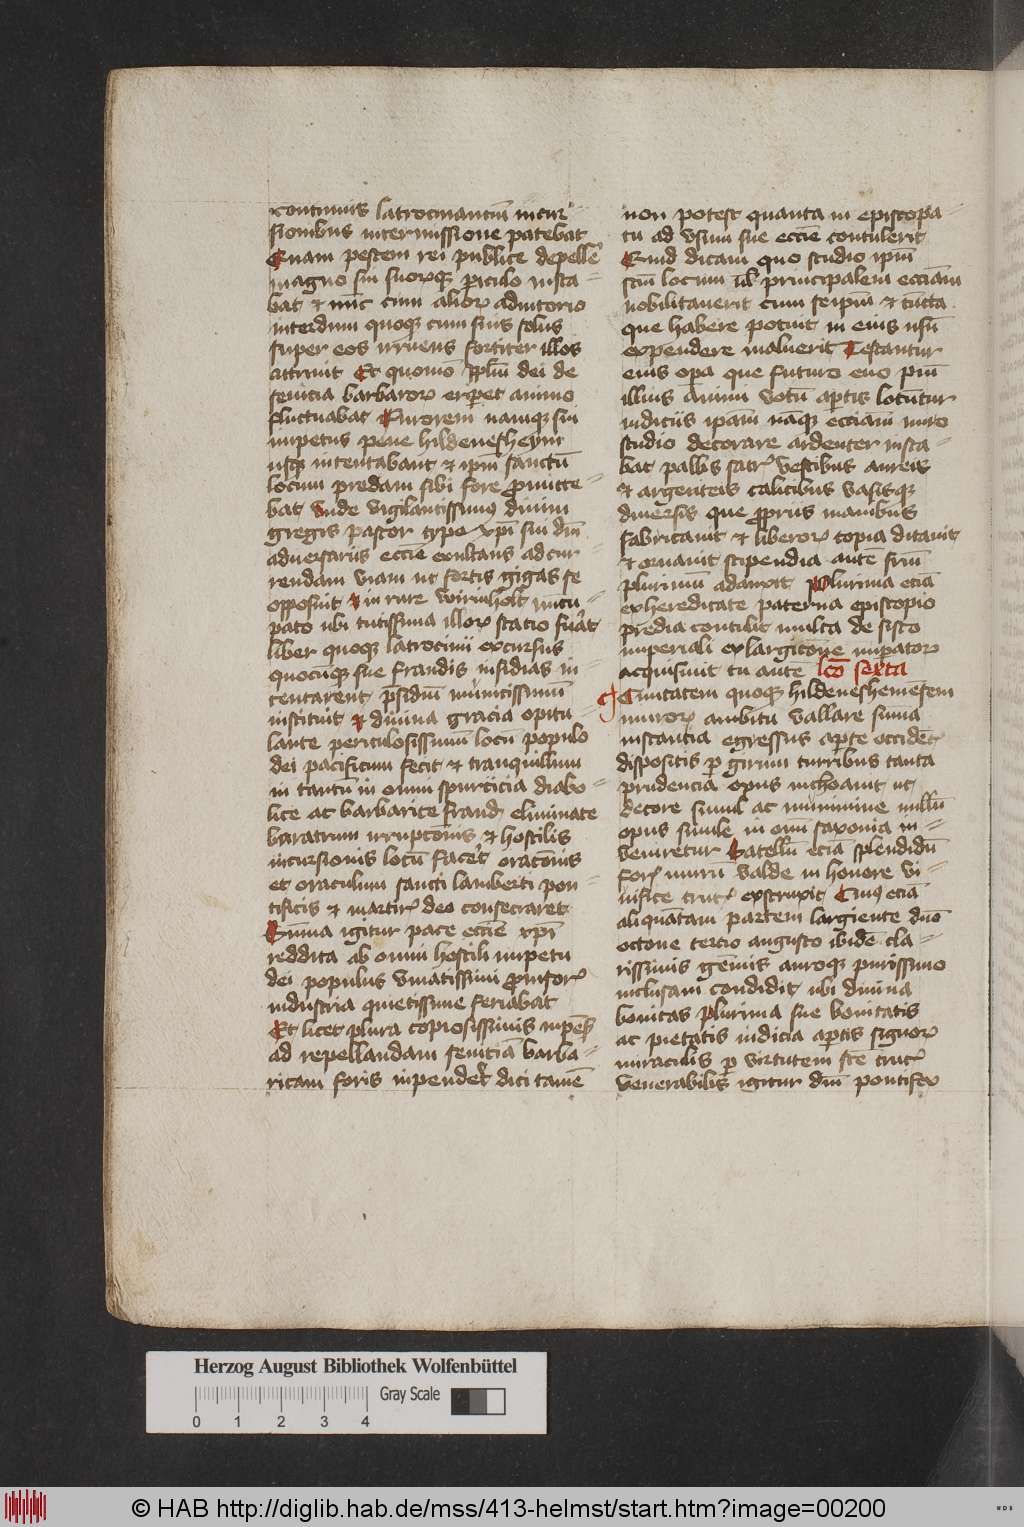 continuis latrocinantiū incur-
sionibus intermissione patebat
Quam pestem rei publice depellē
magno sui suorꝫqꝫ piculo insta-
bat et nūc cum alioꝝ adiutorio
interdum quoqꝫ cum suis solus
super eos irruens fortiter illos
attriuit Et quomō pplm̄ dei de
seuicia barbaroꝝ eriperet animo
fluctuabat Furorem namqꝫ sui
impetus pene hildenesheym
usqꝫ intentabant et ipm̄ sanctū
locum predam sibi fore promitte-
bat Unde vigilantissimꝰ diuini
gregis pastor type xpī sui dn̄i
aduersariis eccīe exultans ad cur-
rendam viam ut fortis gigas se
opposuit et in rure wirinholt nūcu-
pato ubi tutissima illoꝝ statio fuāt
liber quoqꝫ latrocinii excursus
quocūqꝫ sue fraudis insidias in-
tentarent p̄sidiū munitissimū
instituit et diuina gracia opitu-
lante periculosissimū locū populo
dei pacificum fecit et tranquillum
in tantū in omni spurcicia diabo-
lice ac barbarice fraudꝭ eliminate
baratrum irruptōnis et hostilis
incursionis locū faceret oratōnis
et oraculum sancti lamberti pon-
tificis et martirꝭ deo consecraret
Summa igitur pace eccīe xpī
reddita ab omni hostili impetu
dei populus vnīatissimi prouisorꝭ
industria quietissime feriabat
Et licet plura copiosissimis impēsꝭ
ad repellandam seuiciā barba-
ricam foris inpenderet dici tamē
non potest quanta in episcopa-
tu ad vsum sue eccīe contulerit
Quid dicam quo studio ipm̄
scm̄ locum vl principalem eccīam
nobilitauerit cum seipm̄ et cūcta
que habere potuit in eius usū
expendere maluerit Testantur
eius opa que futuro euo piū
illius animi votū aptis locuntur
indiciis ipam naqꝫ eccīam miro
studio decorare ardenter insta-
bat pallis sacrꝭ vestibus aureis
et argenteis calicibus vasisqꝫ
diuersis que propriis manibus
fabricauit et liberoꝝ copia ditauit
et ornauit stipendia autē frm̄
plurimū adauxit Plurima eciā
ex hereditate paterna episcopio
predia contulit multa de fisco
imperiali ex largitōne impatoꝝ
acquisiuit tu autē lcō sexta
Ciuitatem quoqꝫ hildeneshemēsem
muroꝝ ambitu vallare sūma
instancia egressus apte occidētꝭ
dispositis p girum turribus tanta
prudencia opus inchoauit ut
decore simul ac munimine nullū
opus simile in omī saxonia in-
veniretur Satellū eciā splendidū
forꝭ murū valde in honore vi-
uifice crucꝭ exstruxit Cuiꝰ eciā
aliquātam partem largiente dn̄o
octone tercio augusto ibidē cla-
rissimis gēmis auroqꝫ purissimo
inclusam condidit ubi diuina
bonitas plurima sue bonitatis
ac pietatis indicia aptis signoꝝ
miraculis p virtutem sce crucꝭ
venerabilis igitur dn̄i pontifex
Herzog August Bibliothek Wolfenbüttel
Gray Scale
0 1 2 3 4
© HAB http://diglib.hab.de/mss/413-helmst/start.htm?image=00200